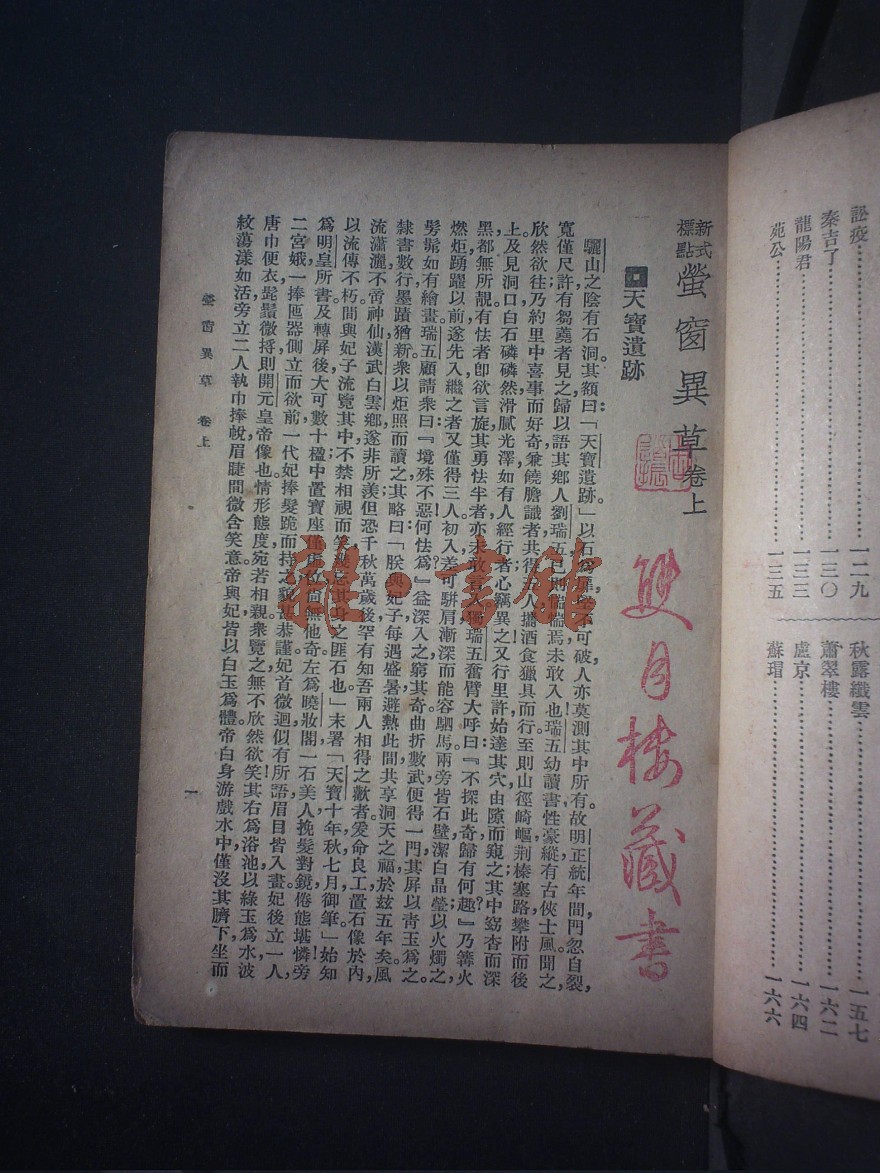 訟疫……一二九
秦吉了……一三〇
龍陽君……一三三
苑公……一三五
秋露纖雲……一五七
蕭翠樓……一六二
盧京……一六四
蘇瑁……一六六
新式標點
螢窗異草卷上
雙月樓藏書
天寶遺跡
驪山之陰有石洞其額曰「天寶遺跡」以石爲扉堅不可破人亦莫測其中所有。故明正統年間門忽自裂，
寬僅尺許有芻蕘者見之歸以語其鄉人劉瑞五已則惴惴焉未敢入也瑞五幼讀書性豪縱有古俠士風聞之，
欣然欲往乃約里中喜事而好奇兼饒膽識者共得五人攜酒食獵具而行至則山徑崎嶇荆榛塞路攀附而後
上及見洞口白石磷磷然滑膩光澤如有人經行者心竊異之又行里許始達其穴由隙而窺之其中窈杳而深
黑都無所覩有怯者卽欲言旋其勇怯半者亦未敢言入獨瑞五奮臂大呼曰『不探此奇歸有何趣？』乃篝火
燃炬踴躍以前遂先入繼之者又僅得三人初入差可駢肩漸深而能容駟馬兩旁皆石壁潔白晶瑩以火燭之，
髣髴如有繪畫瑞五顧請衆曰『境殊不惡何怯爲？』益深入之窮其奇曲折數武便得一門其屏以青玉爲之。
隸書數行墨蹟猶新衆以炬照而讀之其略曰「朕與妃子每遇盛暑避熱此間共享洞天之福於玆五年矣風
流瀟灑不啻神仙漢武白雲鄉遂非所羨但恐千秋萬歲後罕有知吾兩人相得之歡者爰命良工置石像於內，
以流傳不朽間與妃子流覽其中不禁相視而笑幾忘其身之匪石也」末署「天寶十年秋七月御筆」始知
爲明皇所書及轉屏後大可數十楹中置寶座僅虛位尚無他奇左爲曉妝閣一石美人挽髮對鏡倦態堪憐旁
二宮娥一捧匜器側立而欲前一代妃捧髮跪而持之貌甚恭謹妃首微迴似有所語眉目皆入畫妃後立一人，
唐巾便衣髭鬚微捋則開元皇帝像也情形態度宛若相親衆覽之無不欣然欲笑其右爲浴池以綠玉爲水波
紋蕩漾如活旁立二人執巾捧帨眉睫間微含笑意帝與妃皆以白玉爲體帝白身游戲水中僅沒其臍下坐而
螢窗異草 卷上
一